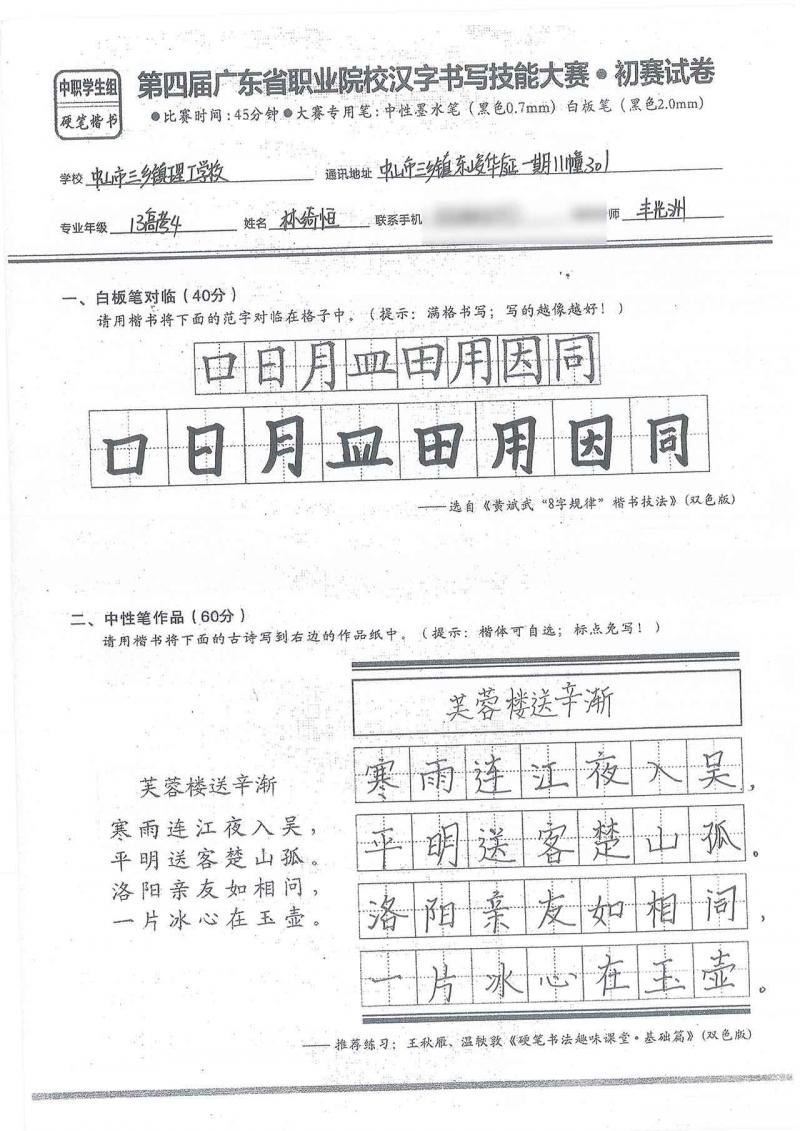 中职学生组
硬笔楷书
第四届广东省职业院校汉字书写技能大赛·初赛试卷
●比赛时间:45分钟●大赛专用笔:中性墨水笔(黑色0.7mm)白板笔(黑色2.0mm)
学校 中山市三乡镇理工学校 通讯地址 中山市三乡镇东 华庭一期11幢301
专业年级 13高考4 姓名 林绮恒 联系手机 师 丰光洲
一、白板笔对临(40分)
请用楷书将下面的范字对临在格子中。(提示:满格书写;写的越像越好!)
口日月皿田用因同
口日月皿田用因同
——选自《黄斌武“8字规律”楷书技法》(双色版)
二、中性笔作品(60分)
请用楷书将下面的古诗写到右边的作品纸中。(提示:楷体可自选;标点免写!)
芙蓉楼送辛渐
寒雨连江夜入吴,
平明送客楚山孤。
洛阳亲友如相问,
一片冰心在玉壶。
芙蓉楼送辛渐
寒雨连江夜入吴,
平明送客楚山孤。
洛阳亲友如相问,
一片冰心在玉壶。
——推荐练习:王秋雁、温软敦《硬笔书法趣味课堂·基础篇》(双色版)